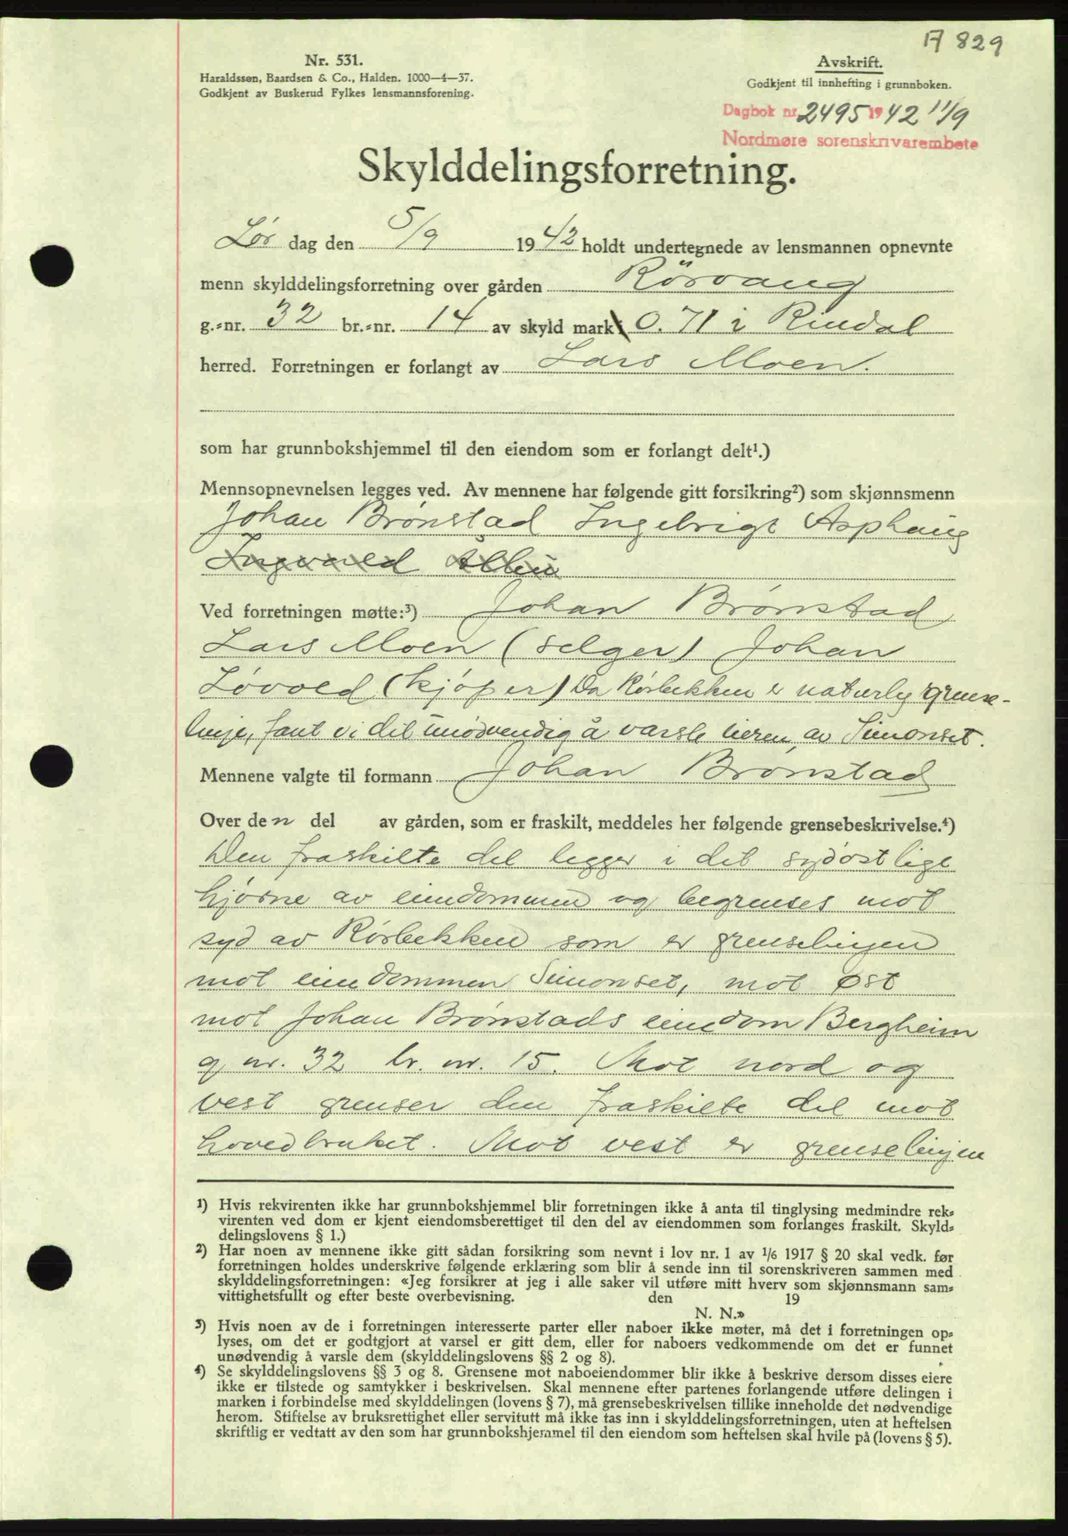 A 829
Nr. 531.
Haraldssen, Baardsen & Co., Halden. 1000—4—37.
Godkjent av Buskerud Fylkes lensmannsforening.
Avskrift.
Godkjent til innhefting i grunnboken.
Dagbok nr. 2495 1942 11/9
Nordmøre sorenskrivarembete
Skylddelingsforretning.
Lør dag den 5/9 1942 holdt undertegnede av lensmannen opnevnte
menn skylddelingsforretning over gården Rörvang
g.-nr. 32 br.-nr. 14 av skyld mark 0.71 i Rindal
herred. Forretningen er forlangt av Lars Moen.
som har grunnbokshjemmel til den eiendom som er forlangt delt¹.)
Mennsopnevnelsen legges ved. Av mennene har følgende gitt forsikring²) som skjønnsmenn
Johan Brønstad Ingebrigt Asphaug
Ingvald
Ved forretningen møtte:³) Johan Brønstad
Lars Moen (selger) Johan
Løvold (kjøper) Da Rørbekken er naturlig grense-
linje, fant vi det unødvendig å varsle eieren av Simonset.
Mennene valgte til formann Johan Brønstad
Over den del av gården, som er fraskilt, meddeles her følgende grensebeskrivelse.⁴)
Den fraskilte del legger i det sydøstlige
hjørne av eiendommen og begrenses mot
syd av Rørbekken som er grenselinjen
mot eiendommen Simonset, mot øst
mot Johan Brønstads eiendom Bergheim
g nr. 32 br. nr. 15. Mot nord og
vest grenser den fraskilte del mot
hovedbruket. Mot vest er grenselinjen
¹) Hvis rekvirenten ikke har grunnbokshjemmel blir forretningen ikke å anta til tinglysing medmindre rek-
virenten ved dom er kjent eiendomsberettiget til den del av eiendommen som forlanges fraskilt. Skyld-
delingslovens § 1.)
²) Har noen av mennene ikke gitt sådan forsikring som nevnt i lov nr. 1 av 1/6 1917 § 20 skal vedk. før
forretningen holdes underskrive følgende erklæring som blir å sende inn til sorenskriveren sammen med
skylddelingsforretningen: «Jeg forsikrer at jeg i alle saker vil utføre mitt hverv som skjønnsmann sam-
vittighetsfullt og efter beste overbevisning. den 19
N. N.»
³) Hvis noen av de i forretningen interesserte parter eller naboer ikke møter, må det i forretningen op-
lyses, om det er godtgjort at varsel er gitt dem, eller for naboers vedkommende om det er funnet
unødvendig å varsle dem (skylddelingslovens §§ 2 og 8).
⁴) Se skylddelingslovens §§ 3 og 8. Grensene mot naboeiendommer blir ikke å beskrive dersom disses eiere
ikke er tilstede og samtykker i beskrivelsen. Skal mennene efter partenes forlangende utføre delingen i
marken i forbindelse med skylddelingen (lovens § 7), må grensebeskrivelsen tillike inneholde det nødvendige
herom. Stiftelse av bruksrettighet eller servitutt må ikke tas inn i skylddelingsforretningen, uten at heftelsen
skriftlig er vedtatt av den som har grunnbokshjemmel til den eiendom som heftelsen skal hvile på (lovens § 5).